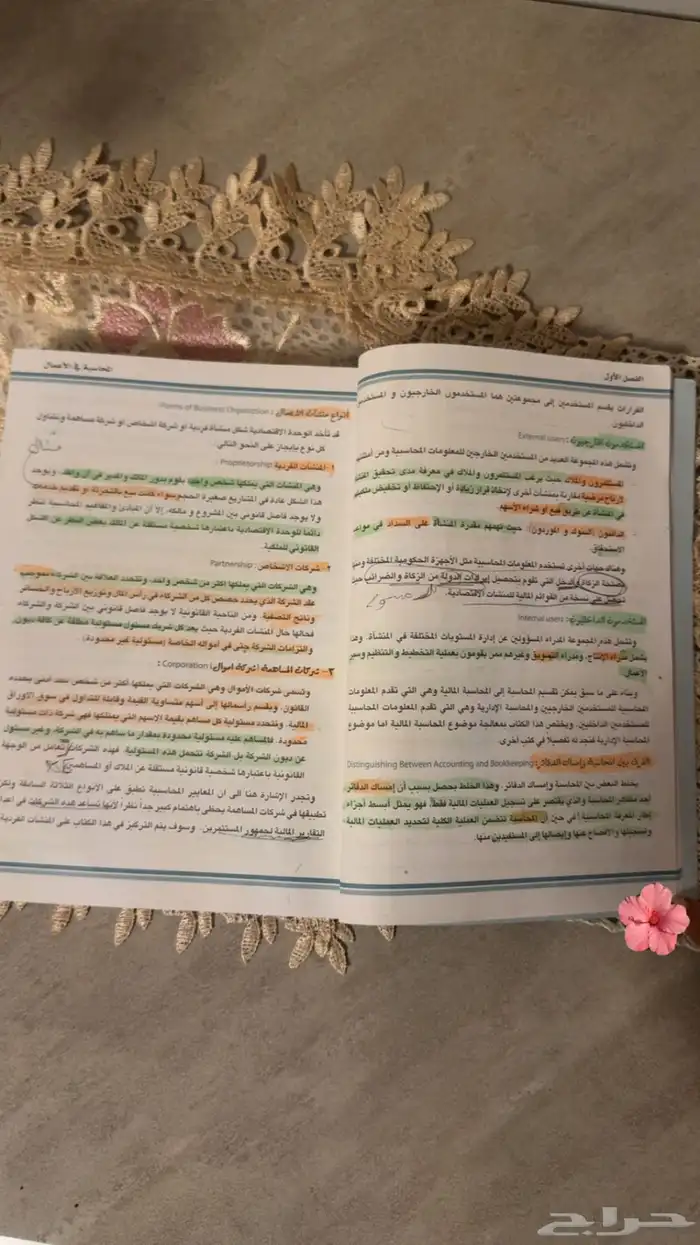 الفصل الأول
القرارات يقسم المستخدمين إلى مجموعتين هما المستخدمون الخارجيون و المستخدمين
الداخليون
المستخدمون الخارجيون: External users
وتشمل هذه المجموعة العديد من المستخدمين الخارجين للمعلومات المحاسبية ومن أمثلتهم
المستثمرون والملاك حيث يرغب المستثمرون والملاك في معرفة مدى تحقيق المنشأة
لأرباح مرضية مقارنة بمنشآت أخرى لإتخاذ قرار زيادة أو الإحتفاظ او تخفيض ملكيتهم
في المنشأة عن طريق بيع أو شراء الأسهم.
الدائنون (البنوك و الموردون): حيث تهمهم مقدرة المنشأة على السداد في مواعيد
الاستحقاق
وهناك جهات أخرى تستخدم المعلومات المحاسبية مثل الأجهزة الحكومية المختلفة ومنها
مصلحة الزكاة والدخل التي تقوم بتحصيل إيرادات الدولة من الزكاة والضرائب حيث
تحصل على نسخة من القوائم المالية للمنشآت الاقتصادية.
المستخدمون الداخليون: Internal users
وتشمل هذه المجموعة المدراء المسؤولين عن إدارة المستويات المختلفة في المنشأة. وهذا
يشمل مدراء الإنتاج، ومدراء التسويق وغيرهم ممن يقومون بعملية التخطيط والتنظيم وسير
الأعمال
وبناء على ما سبق يمكن تقسيم المحاسبة إلى المحاسبة مالية وهي التي تقدم المعلومات
المحاسبية للمستخدمين الخارجين والمحاسبة الإدارية وهي التي تقدم المعلومات المحاسبية
للمستخدمين الداخليين. ويختص هذا الكتاب بمعالجة موضوع المحاسبة المالية اما موضوع
المحاسبة الإدارية فتجد له تفصيلا في كتب أخرى.
الفرق بين المحاسبة وإمساك الدفاتر: Distinguishing Between Accounting and Bookkeeping
يخلط البعض بين المحاسبة وإمساك الدفاتر. وهذا الخلط يحصل بسبب أن إمساك الدفاتر
أحد عناصر المحاسبة والذي يقتصر على تسجيل العمليات المالية فقط، فهو يمثل أبسط أجزاء
إطار المعرفة المحاسبية في حين أن المحاسبة تتضمن العملية الكلية لتحديد العمليات المالية
وتسجيلها والافصاح عنها وإيصالها إلى المستفيدين منها.
المحاسبة في الأعمال
أنواع منشآت الأعمال: Forms of Business Organization
قد تأخذ الوحدة الاقتصادية شكل منشأة فردية او شركة اشخاص او شركة مساهمة ونتناول
كل نوع بإيجاز على النحو التالي:
١- المنشآت الفردية: Proprietorship
وهي المنشآت التي يملكها شخص واحد يقوم بدور المالك والمدير في آن واحد. ويوجد
هذا الشكل عادة في المشاريع صغيرة الحجم سواء كانت تبيع بالتجزئة أو تقديم خدمات
ولا يوجد فاصل قانوني بين المشروع و مالكه، إلا أن المبادئ والمفاهيم المحاسبية تنظر
دائماً للوحدة الاقتصادية باعتبارها شخصية مستقلة عن المالك بغض النظر عن الشكل
القانوني للملكية.
شركات الأشخاص: Partnership
وهي الشركات التي يملكها أكثر من شخص واحد، وتتحدد العلاقة بين الشركاء بموجب
عقد الشركة الذي يحدد حصص كل من الشركاء في رأس المال وتوزيع الأرباح والخسائر
وناتج التصفية. ومن الناحية القانونية لا يوجد فاصل قانوني بين الشركة والشركاء،
فحالها حال المنشآت الفردية حيث يعد كل شريك مسئول مسئولية مطلقة عن كافة ديون
والتزامات الشركة حتى في أمواله الخاصة (مسئولية غير محدودة).
٣- شركات المساهمة (شركة أموال): Corporation
وتسمى شركات الأموال وهي الشركات التي يملكها أكثر من شخص بحد أدنى يحدده
القانون. ويقسم رأسمالها إلى أسهم متساوية القيمة وقابلة للتداول في سوق الأوراق
المالية. وتتحدد مسئولية كل مساهم بقيمة الاسهم التي يمتلكها فهي شركة ذات مسئولية
محدودة. فالمساهم عليه مسئولية محدودة بمقدار ما ساهم به في الشركة، وغير مسئول
عن ديون الشركة بل الشركة تتحمل هذه المسئولية. فهذه الشركات تعامل من الوجهة
القانونية باعتبارها شخصية قانونية مستقلة عن الملاك أو المساهمين
وتجدر الإشارة هنا الى ان المعايير المحاسبية تطبق على الأنواع الثلاثة السابقة ولكن
تطبيقها في شركات المساهمة يحظى باهتمام كبير جداً نظراً لأنها تساعد هذه الشركات في اعداد
التقارير المالية لجمهور المستثمرين. وسوف يتم التركيز في هذا الكتاب على المنشآت الفردية
حراج